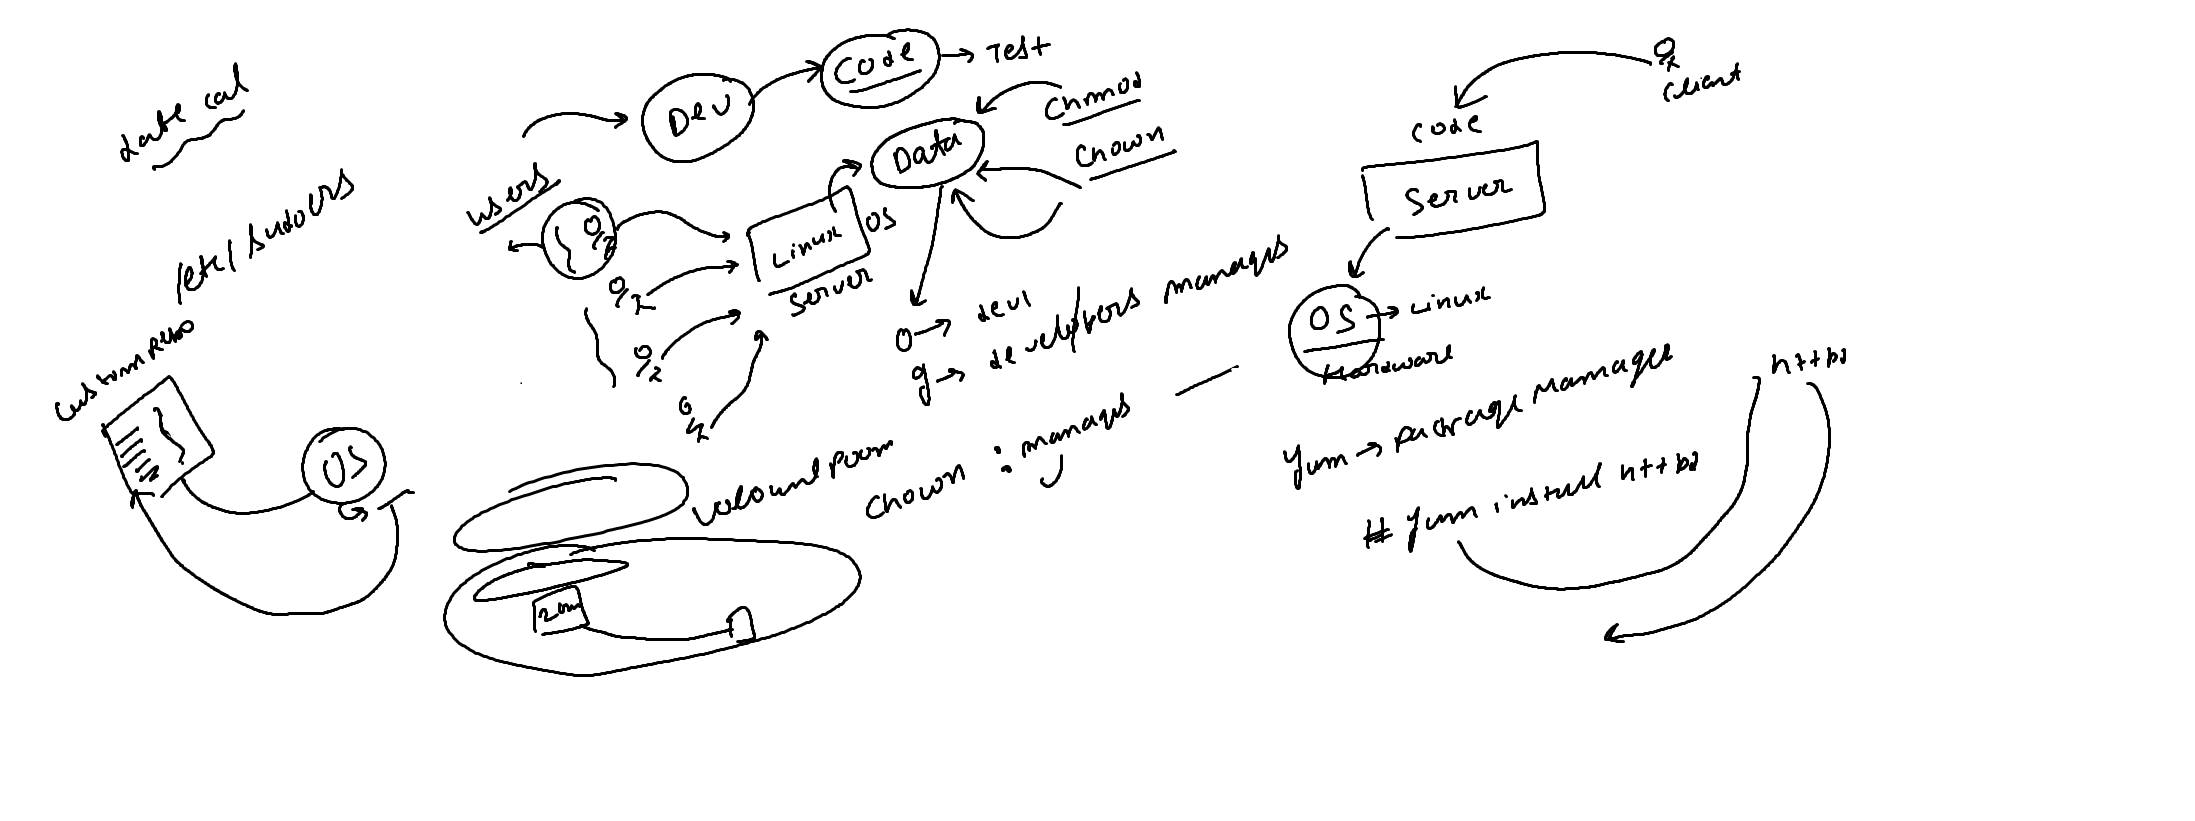 date cal
/etc/sudoers
custom repo
OS
users
Dev
Code
Test
Data
Chmod
Chown
Linux
OS
Server
O → dev1
g → developers manages
chown : manages
20m
Client
code
Server
OS → Linux
Hardware
Yum → package manager
httpd
# Yum install httpd